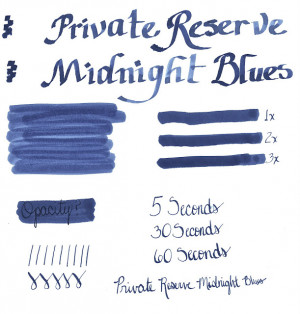 Private Reserve
Midnight Blues
1x
2x
3x
Opacity?
5 Seconds
30 Seconds
60 Seconds
Private Reserve Midnight Blues